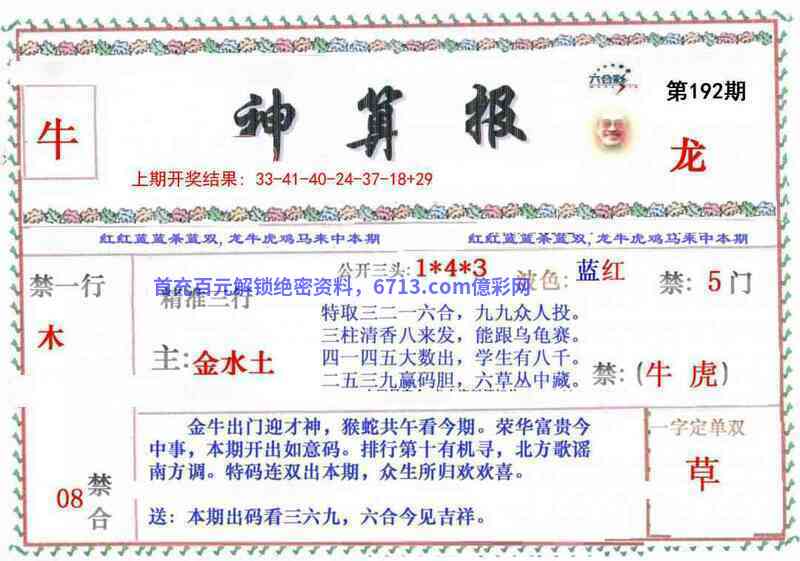 六合彩
第192期
牛
神算报
龙
上期开奖结果: 33-41-40-24-37-18+29
红红蓝蓝条蓝双,龙牛虎鸡马来中本期
红红蓝蓝条蓝双,龙牛虎鸡马来中本期
禁一行
木
公开三头:1*4*3
波色: 蓝红
禁: 5门
首充百元解锁绝密资料，6713.com億彩网
精准三行
主:金水土
特取三二一六合，九九众人投。
三柱清香八来发，能跟乌龟赛。
四一四五大数出，学生有八千。
二五三九赢码胆，六草丛中藏。
禁:(牛 虎)
金牛出门迎才神，猴蛇共午看今期。荣华富贵今
中事，本期开出如意码。排行第十有机寻，北方歌谣
南方调。特码连双出本期，众生所归欢欢喜。
送：本期出码看三六九，六合今见吉祥。
一字定单双
草
08禁合